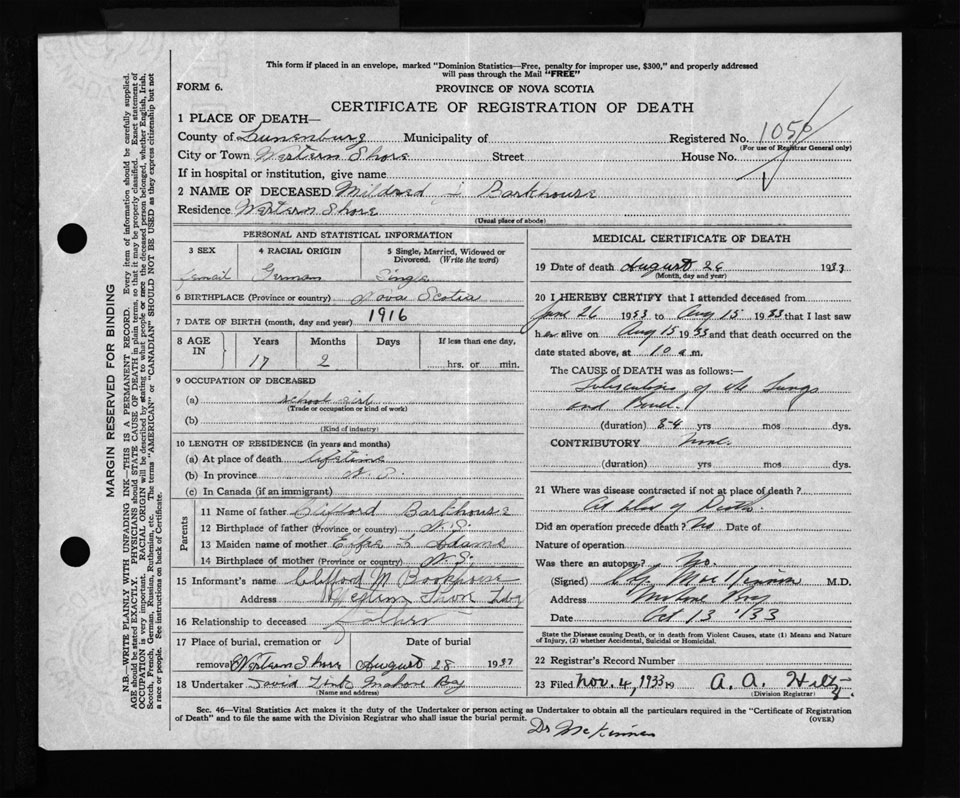 This form if placed in an envelope, marked "Dominion Statistics—Free, penalty for improper use, $300," and properly addressed
will pass through the Mail "FREE"
FORM 6.
PROVINCE OF NOVA SCOTIA
CERTIFICATE OF REGISTRATION OF DEATH
1 PLACE OF DEATH—
County of Lunenburg Municipality of Registered No. 1050
(For use of Registrar General only)
City or Town Western Shore Street House No.
If in hospital or institution, give name
2 NAME OF DECEASED Mildred Barkhouse
Residence Western Shore
(Usual place of abode)
PERSONAL AND STATISTICAL INFORMATION
3 SEX 4 RACIAL ORIGIN 5 Single, Married, Widowed or Divorced. (Write the word)
German Single
6 BIRTHPLACE (Province or country) Nova Scotia
7 DATE OF BIRTH (month, day and year) 1916
8 AGE IN Years Months Days If less than one day,
17 2 hrs. or min.
9 OCCUPATION OF DECEASED
(a) school girl
(Trade or occupation or kind of work)
(b)
(Kind of industry)
10 LENGTH OF RESIDENCE (in years and months)
(a) At place of death lifetime
(b) In province
(c) In Canada (if an immigrant)
Parents
11 Name of father Clifford Barkhouse
12 Birthplace of father (Province or country) N.S.
13 Maiden name of mother Adams
14 Birthplace of mother (Province or country) N.S.
15 Informant's name Clifford M.
Address Western Shore
16 Relationship to deceased father
17 Place of burial, cremation or removal Date of burial
Western Shore August 28 1937
18 Undertaker David Mahone Bay
(Name and address)
MEDICAL CERTIFICATE OF DEATH
19 Date of death August 26 1933
(Month, day and year)
20 I HEREBY CERTIFY that I attended deceased from
June 26 1933 to Aug 15 1933 that I last saw
her alive on Aug 15 1933 and that death occurred on the
date stated above, at 10 a.m.
The CAUSE of DEATH was as follows:—
Tuberculosis of the Lungs
and Bowel
(duration) yrs mos dys.
CONTRIBUTORY None.
(duration) yrs mos dys.
21 Where was disease contracted if not at place of death?
At place of Death.
Did an operation precede death? No Date of
Nature of operation
Was there an autopsy? No.
(Signed) M.D.
Address Mahone Bay
Date Oct 13 1933
State the Disease causing Death, or in death from Violent Causes, state (1) Means and Nature
of Injury, (2) whether Accidental, Suicidal or Homicidal.
22 Registrar's Record Number
23 Filed Nov. 4, 1933 19 A. A. Hiltz
(Division Registrar)
Sec. 46—Vital Statistics Act makes it the duty of the Undertaker or person acting as Undertaker to obtain all the particulars required in the "Certificate of Registration
of Death" and to file the same with the Division Registrar who shall issue the burial permit.
(OVER)
Dr McKinnon
MARGIN RESERVED FOR BINDING
N.B.—WRITE PLAINLY WITH UNFADING INK—THIS IS A PERMANENT RECORD. Every item of information should be carefully supplied.
AGE should be stated EXACTLY. PHYSICIANS should STATE CAUSE OF DEATH in plain terms, so that it may be properly classified. Exact statement of
OCCUPATION is very important. RACIAL ORIGIN will be described by stating to what people or race the deceased person belonged, whether English, Irish,
Scotch, French, German, Russian, Ruthenian, etc. The terms "AMERICAN" or "CANADIAN" SHOULD NOT BE USED as they express citizenship but not
a race or people. See instructions on back of Certificate.